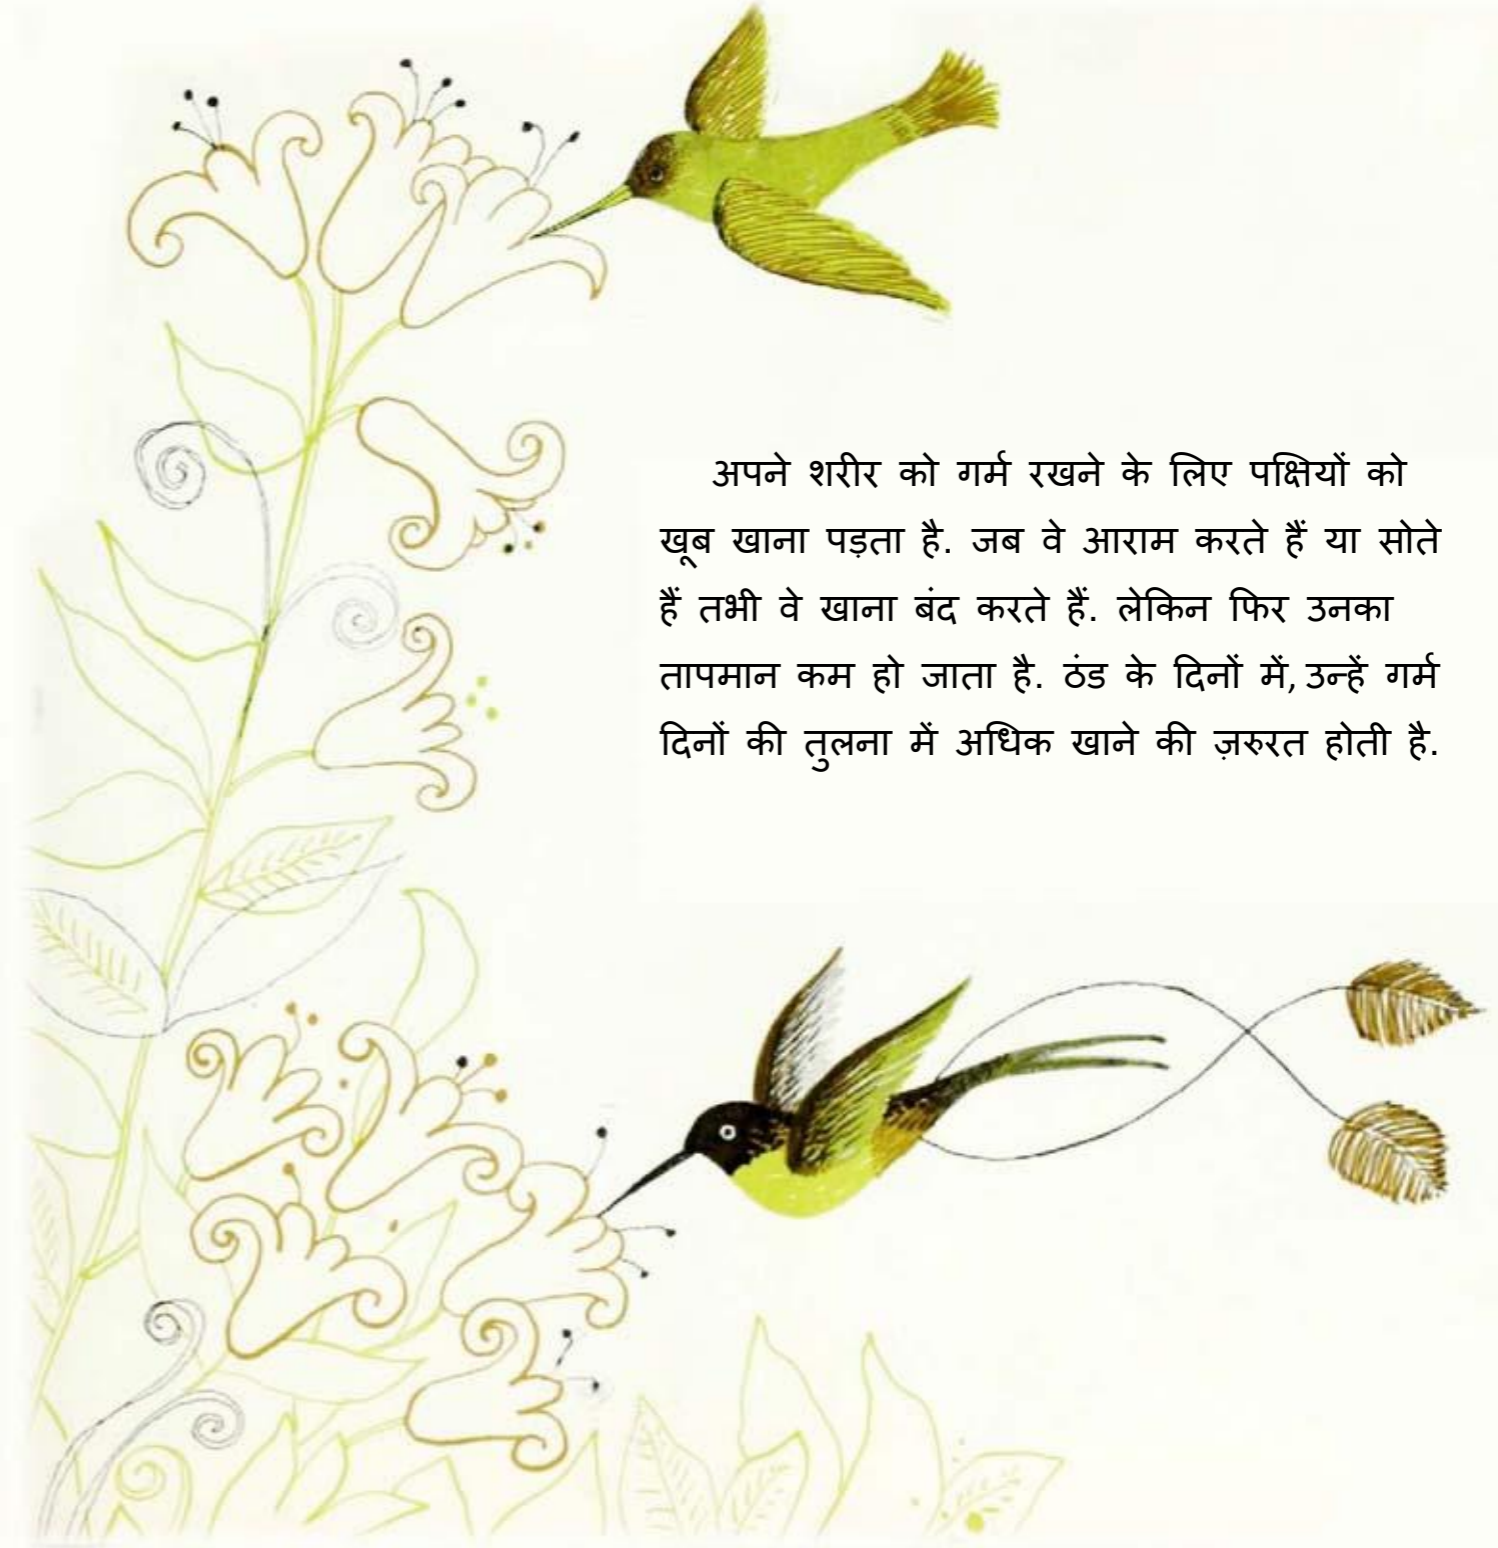 अपने शरीर को गर्म रखने के लिए पक्षियों को
खूब खाना पड़ता है. जब वे आराम करते हैं या सोते
हैं तभी वे खाना बंद करते हैं. लेकिन फिर उनका
तापमान कम हो जाता है. ठंड के दिनों में, उन्हें गर्म
दिनों की तुलना में अधिक खाने की ज़रुरत होती है.